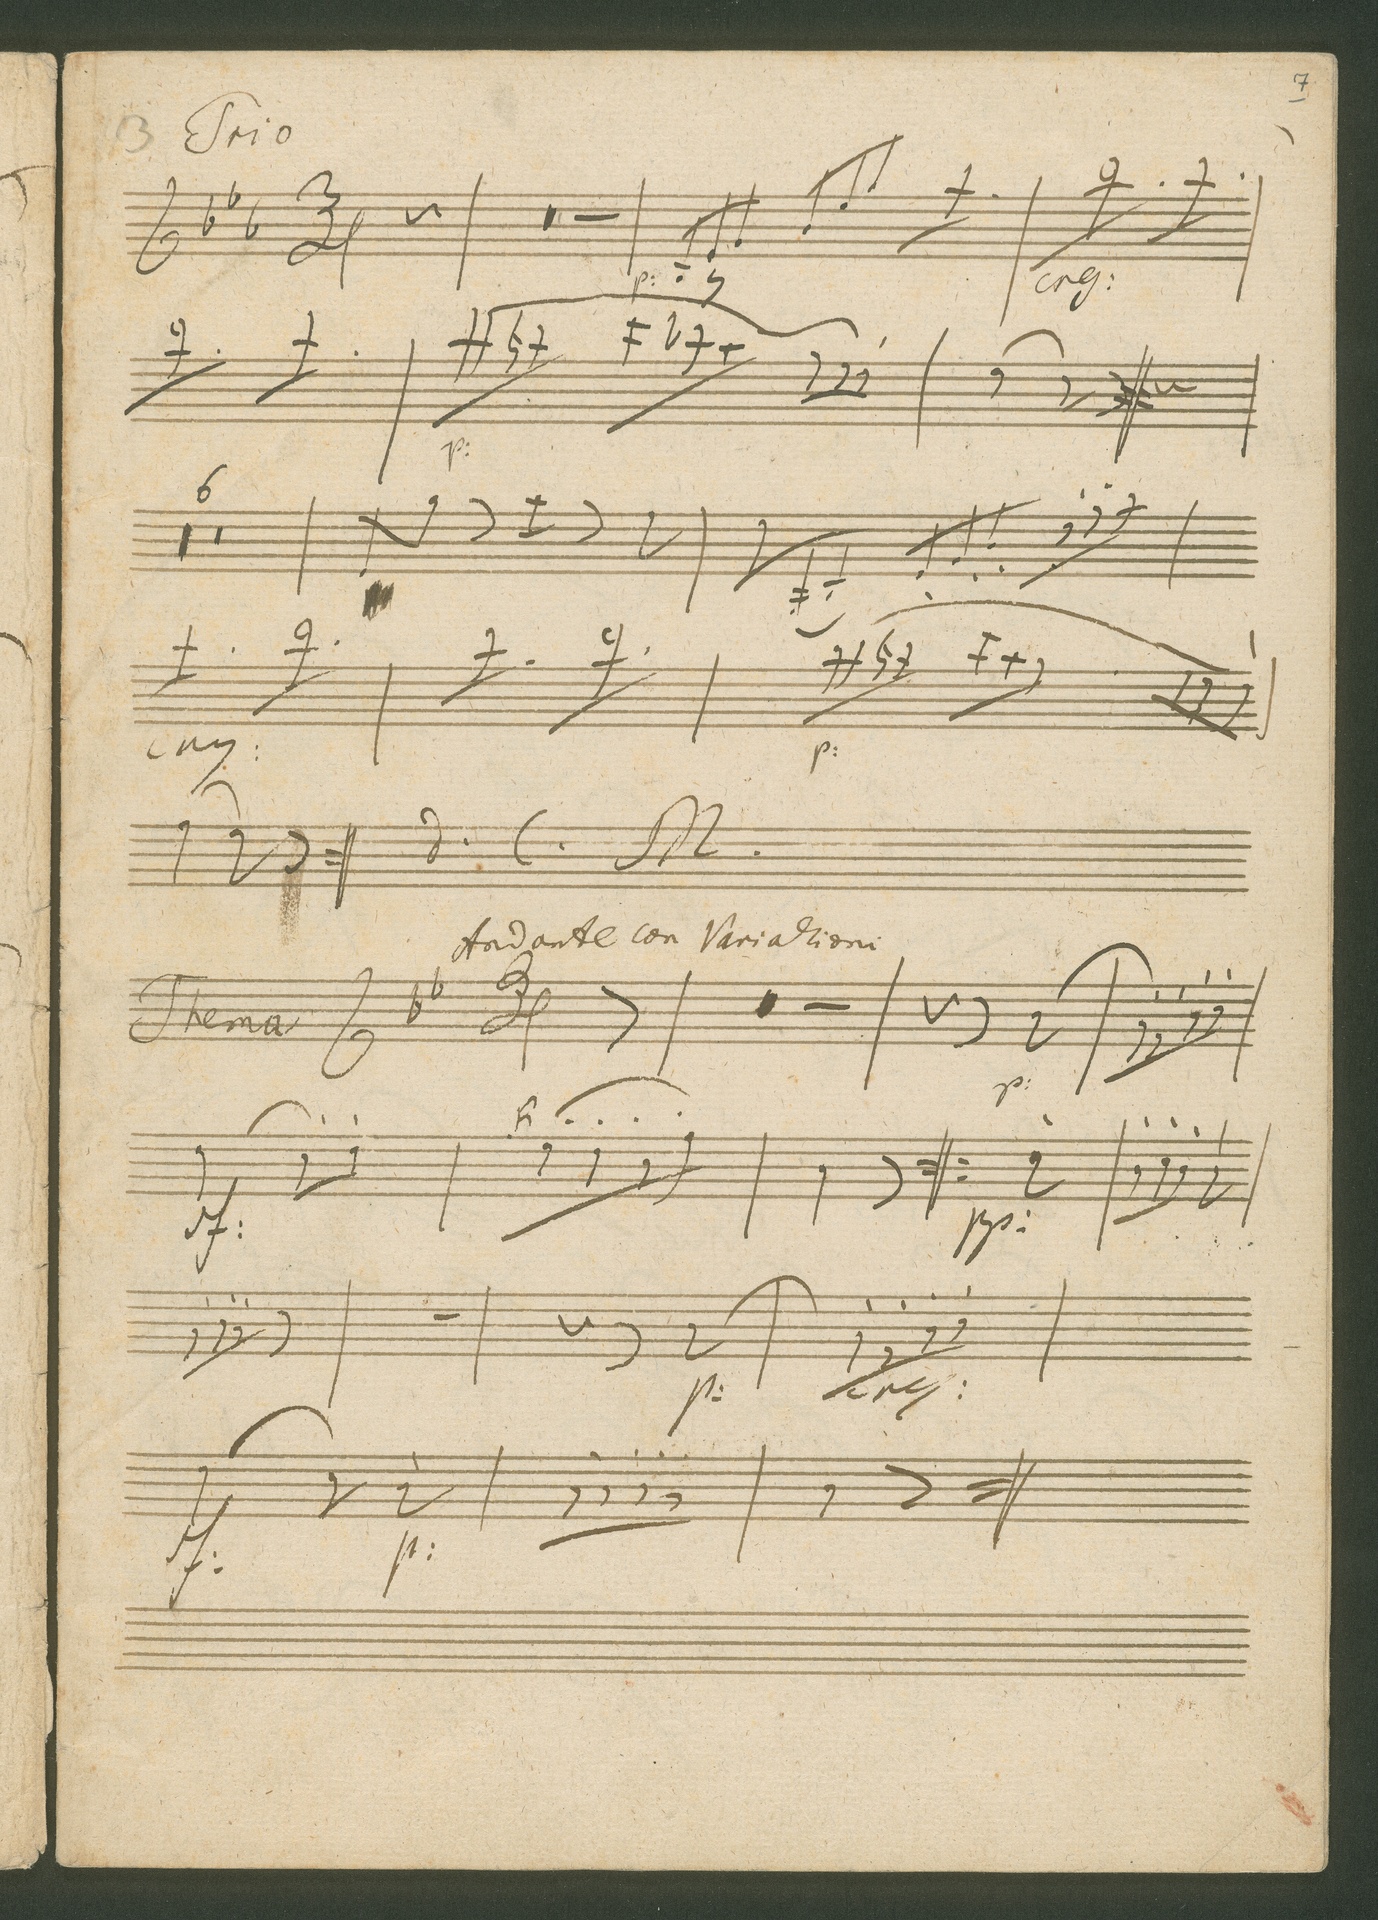 7
3 Trio
p: cres:
p:
6
cres: p:
D. C. M.
Andante con Variazioni
Thema p:
sf: pp:
p: cres:
sf: p: